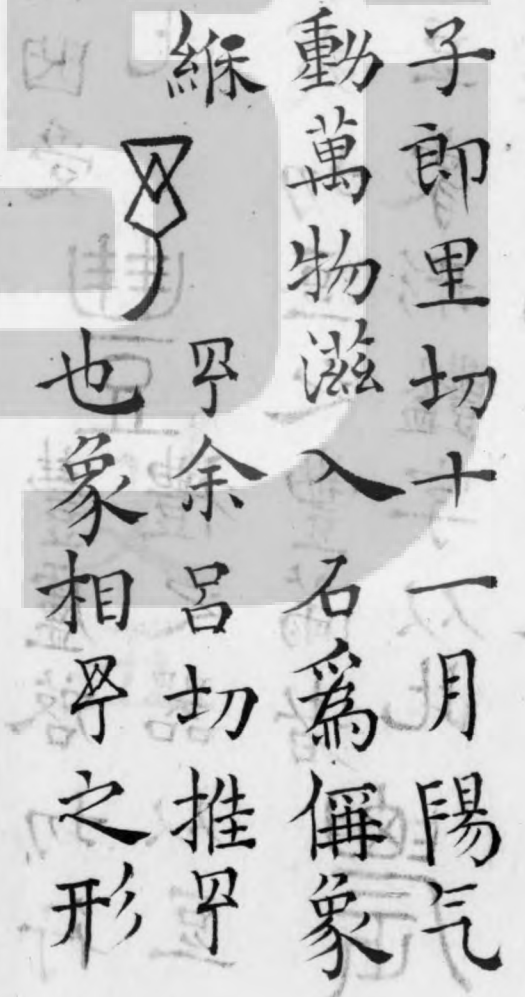 子即里切十一月陽气
動萬物滋入石爲偁象
緥
予余呂切推予
也象相予之形